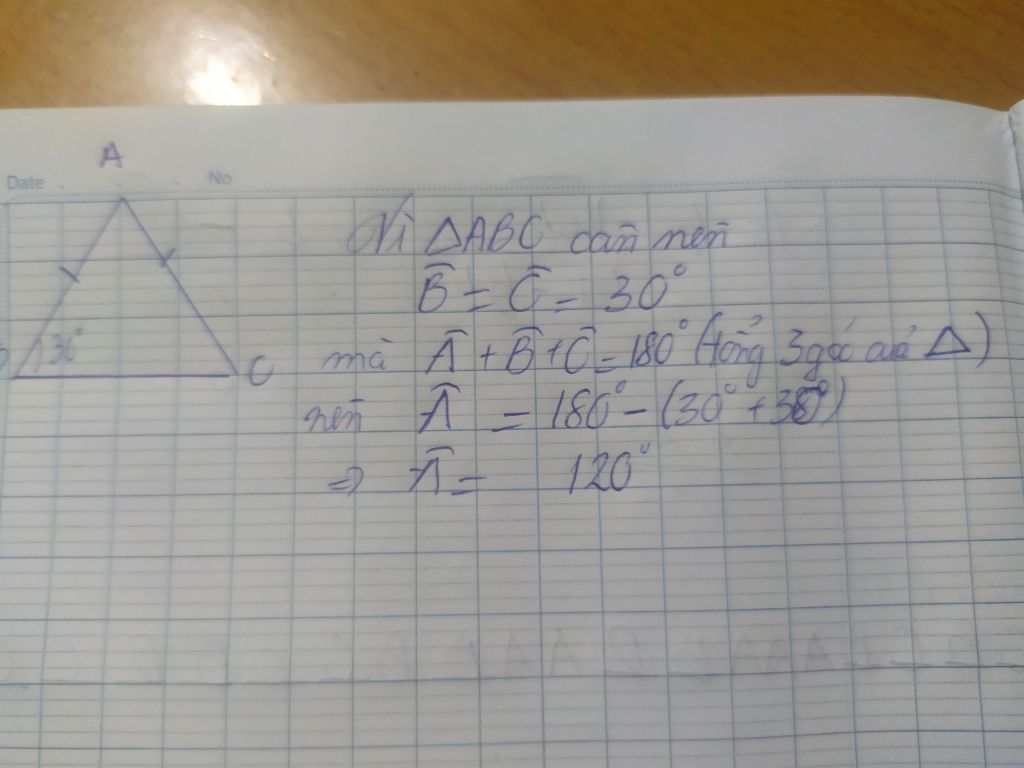 A
Date No
Vì ΔABC cân nên
B̂ = Ĉ = 30°
30° C mà Â + B̂ + Ĉ = 180° (tổng 3 góc của Δ)
nên Â = 180° - (30° + 30°)
=> Â = 120°